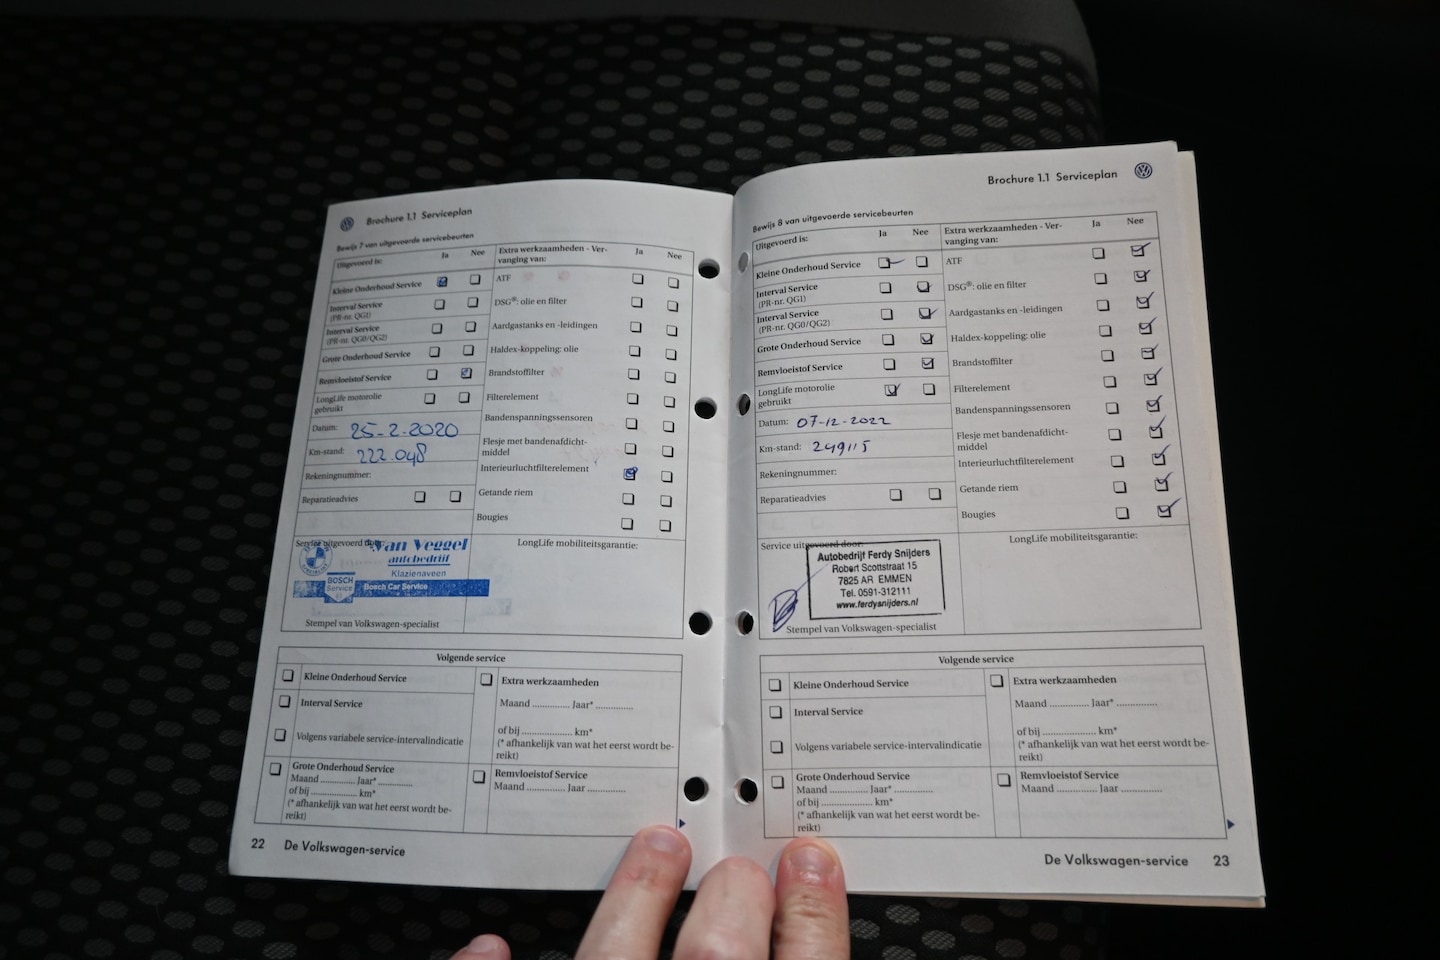 Brochure 1.1 Serviceplan
Bewijs 7 van uitgevoerde servicebeurten
Uitgevoerd is:
Ja
Nee
Kleine Onderhoud Service
Interval Service
(PR-nr. QG1)
Interval Service
(PR-nr. QG0/QG2)
Grote Onderhoud Service
Remvloeistof Service
LongLife motorolie
gebruikt
Datum: 25-2-2020
Km-stand: 222.048
Rekeningnummer:
Reparatieadvies
Extra werkzaamheden - Ver-
vanging van:
Ja
Nee
ATF
DSG®: olie en filter
Aardgastanks en -leidingen
Haldex-koppeling: olie
Brandstoffilter
Filterelement
Bandenspanningssensoren
Flesje met bandenafdicht-
middel
Interieurluchtfilterelement
Getande riem
Bougies
Service uitgevoerd door:
van Veggel
autobedrijf
Klazienaveen
BOSCH
Service
Bosch Car Service
Stempel van Volkswagen-specialist
LongLife mobiliteitsgarantie:
Volgende service
Kleine Onderhoud Service
Interval Service
Volgens variabele service-intervalindicatie
Grote Onderhoud Service
Maand .............. Jaar* ..............
of bij .................... km*
(* afhankelijk van wat het eerst wordt be-
reikt)
Extra werkzaamheden
Maand .............. Jaar* ..............
of bij .................... km*
(* afhankelijk van wat het eerst wordt be-
reikt)
Remvloeistof Service
Maand .............. Jaar ..............
22 De Volkswagen-service
Brochure 1.1 Serviceplan
Bewijs 8 van uitgevoerde servicebeurten
Uitgevoerd is:
Ja
Nee
Kleine Onderhoud Service
Interval Service
(PR-nr. QG1)
Interval Service
(PR-nr. QG0/QG2)
Grote Onderhoud Service
Remvloeistof Service
LongLife motorolie
gebruikt
Datum: 07-12-2022
Km-stand: 249115
Rekeningnummer:
Reparatieadvies
Extra werkzaamheden - Ver-
vanging van:
Ja
Nee
ATF
DSG®: olie en filter
Aardgastanks en -leidingen
Haldex-koppeling: olie
Brandstoffilter
Filterelement
Bandenspanningssensoren
Flesje met bandenafdicht-
middel
Interieurluchtfilterelement
Getande riem
Bougies
Service uitgevoerd door:
Autobedrijf Ferdy Snijders
Robert Scottstraat 15
7825 AR EMMEN
Tel. 0591-312111
www.ferdysnijders.nl
Stempel van Volkswagen-specialist
LongLife mobiliteitsgarantie:
Volgende service
Kleine Onderhoud Service
Interval Service
Volgens variabele service-intervalindicatie
Grote Onderhoud Service
Maand .............. Jaar* ..............
of bij .................... km*
(* afhankelijk van wat het eerst wordt be-
reikt)
Extra werkzaamheden
Maand .............. Jaar* ..............
of bij .................... km*
(* afhankelijk van wat het eerst wordt be-
reikt)
Remvloeistof Service
Maand .............. Jaar ..............
De Volkswagen-service 23